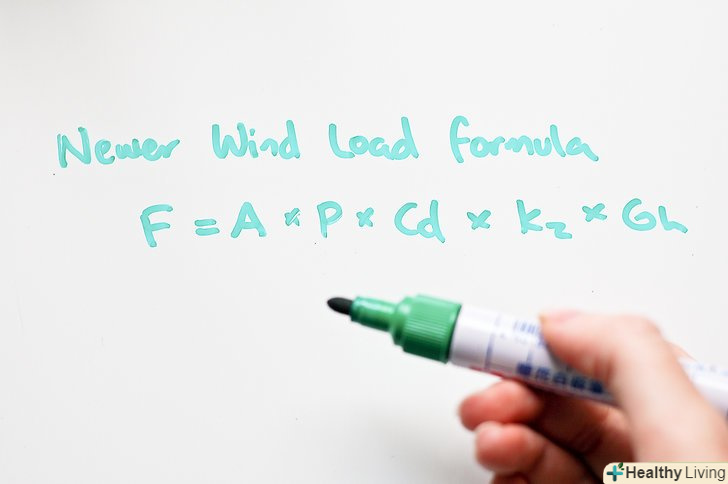 Newer Wind Load formula
F = A × P × Cd × Kz × Gh
Healthy Living